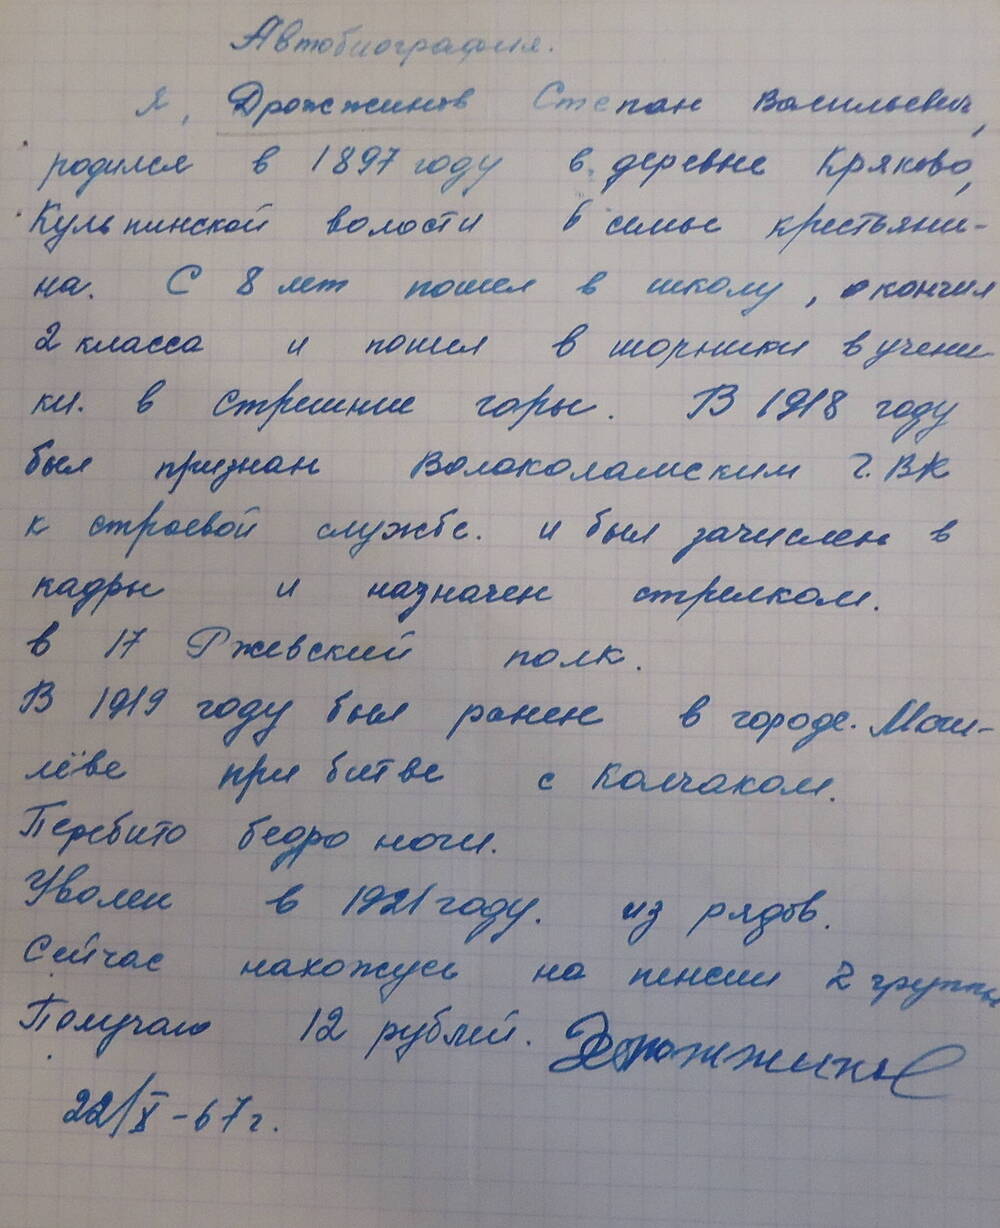 Автобиография.
Я, Дрожжинов Степан Васильевич,
родился в 1897 году в деревне Кряково,
Кульпинской волости в семье крестьяни-
на. С 8 лет пошел в школу, окончил
2 класса и пошел в шорники в учени-
ки. в стрешние горы. В 1918 году
был признан Волоколамским Г.ВК
к строевой службе. и был зачислен в
кадры и назначен стрелком.
в 17 Ржевский полк.
В 1919 году был ранен в городе. Моги-
лёве при битве с Колчаком.
Перебито бедро ноги.
Уволен в 1921 году. из рядов.
Сейчас нахожусь на пенсии 2 группы
Получаю 12 рублей. Дрожжинов
22/X-67г.